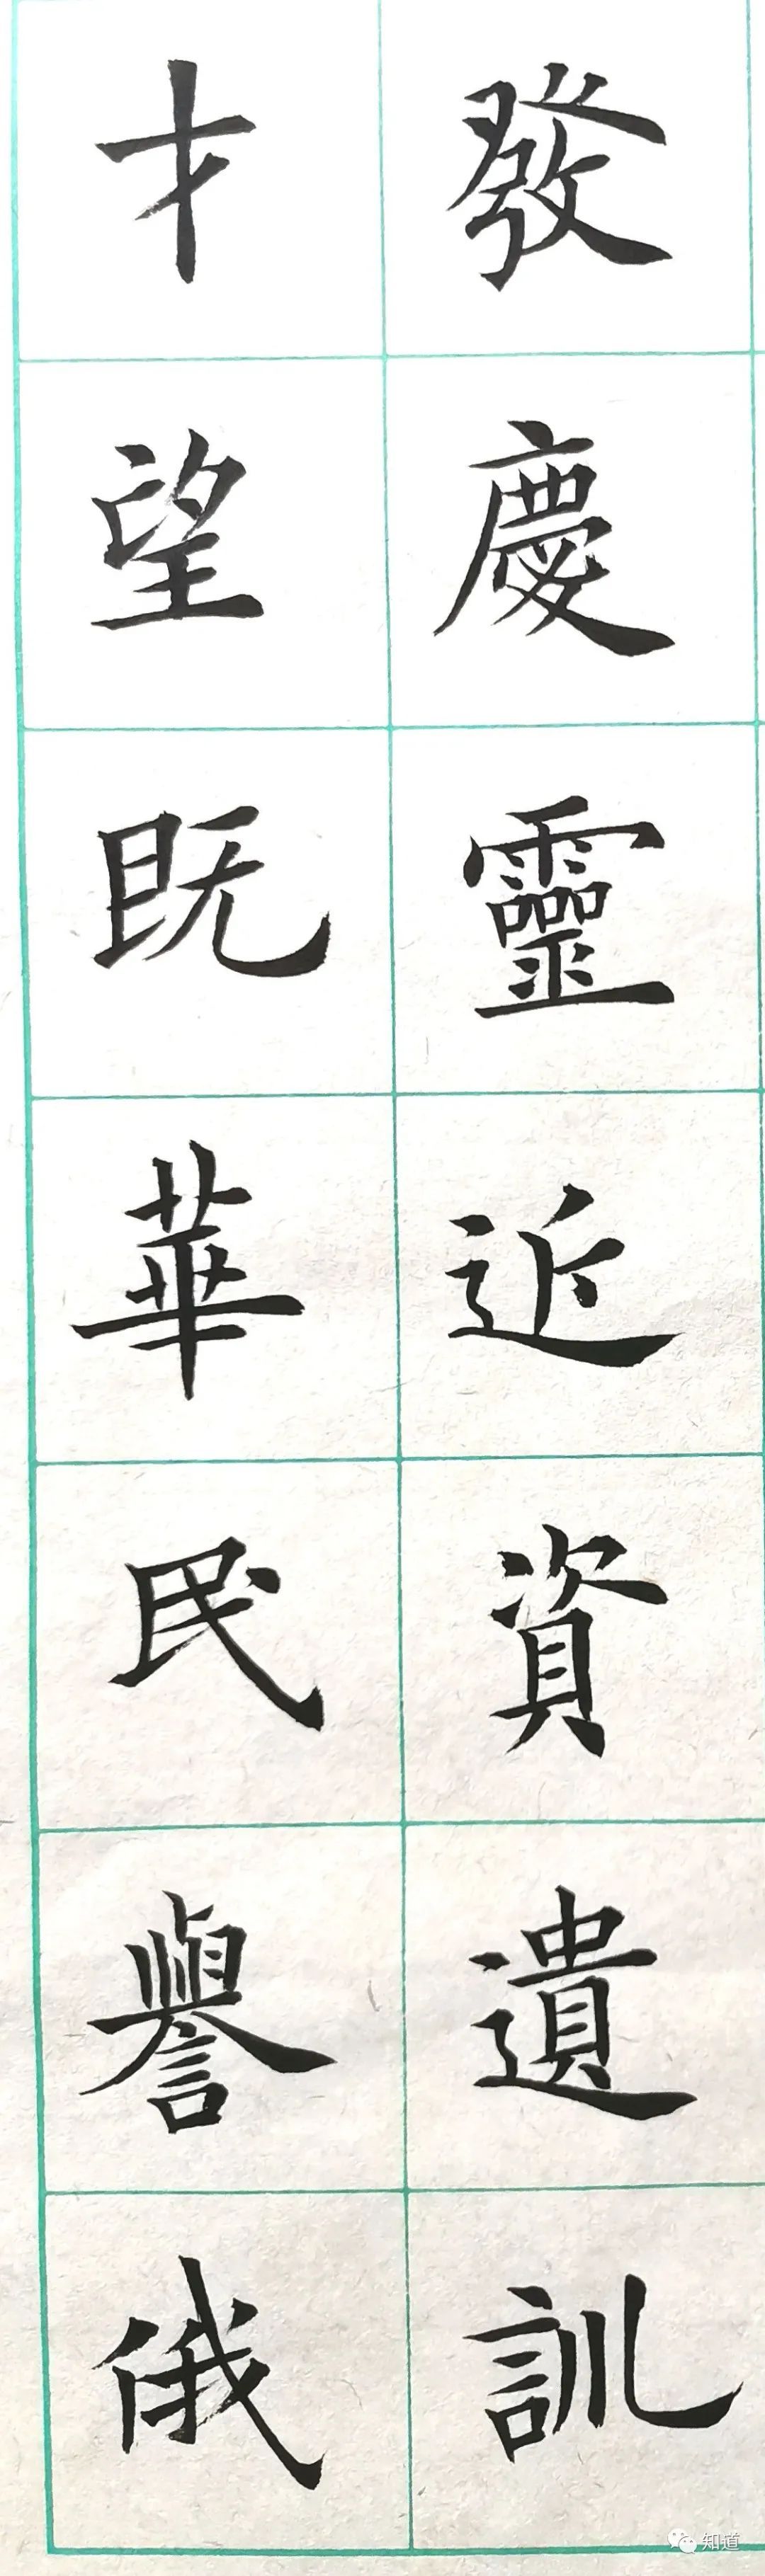 發慶靈近資遺訓
才望既華民譽俄
知道